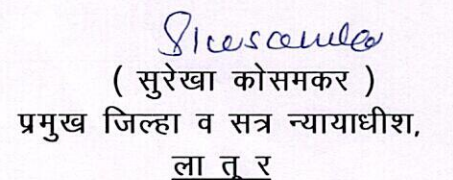 ( सुरेखा कोसमकर )
प्रमुख जिल्हा व सत्र न्यायाधीश,
ला तू र